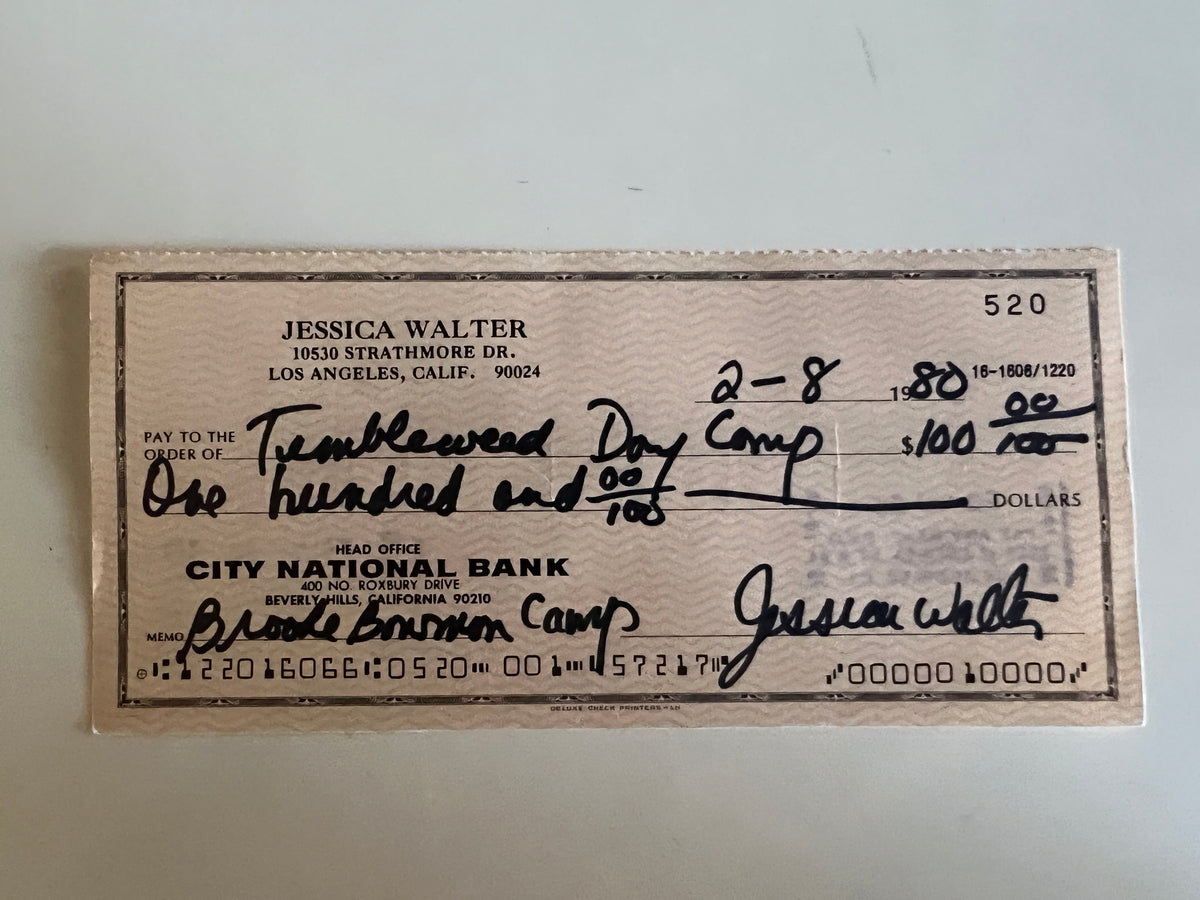 520
JESSICA WALTER
10530 STRATHMORE DR.
LOS ANGELES, CALIF. 90024
2-8 1980 16-1606/1220
PAY TO THE ORDER OF Tumbleweed Day Camp $100 00/100
One hundred and 00/100 DOLLARS
HEAD OFFICE
CITY NATIONAL BANK
400 NO. ROXBURY DRIVE
BEVERLY HILLS, CALIFORNIA 90210
MEMO Brooke Bowman Camp Jessica Walter
⑆122016066⑆0520⑈ 001⑈157217⑈ ⑇0000010000⑇
DELUXE CHECK PRINTERS